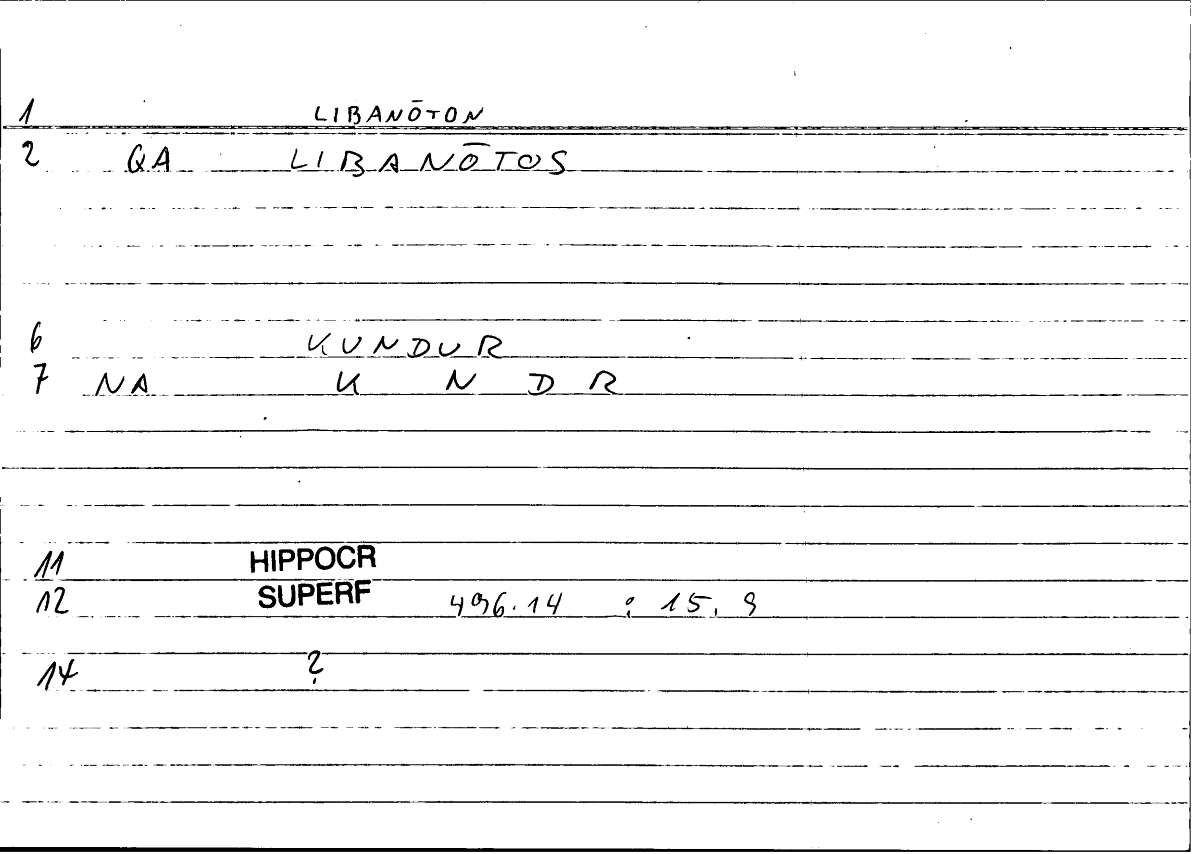 1 LIBANŌTON
2 QA LIBANŌTOS
6 KUNDUR
7 NA K N D R
11 HIPPOCR
12 SUPERF 496.14 : 15, 9
14 ?